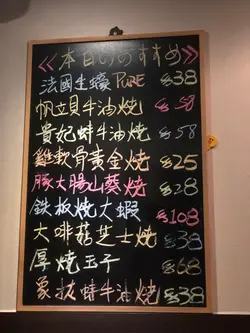 ≪本日のおすすめ≫
法國生蠔 PURE $38
帆立貝牛油燒 $58
貴妃蚌牛油燒 $58
雞軟骨黃金燒 $25
豚大腸山葵燒 $28
鉄板燒大蝦 $108
大啡菇芝士燒 $38
厚燒玉子 $68
象拔蚌牛油燒 $38